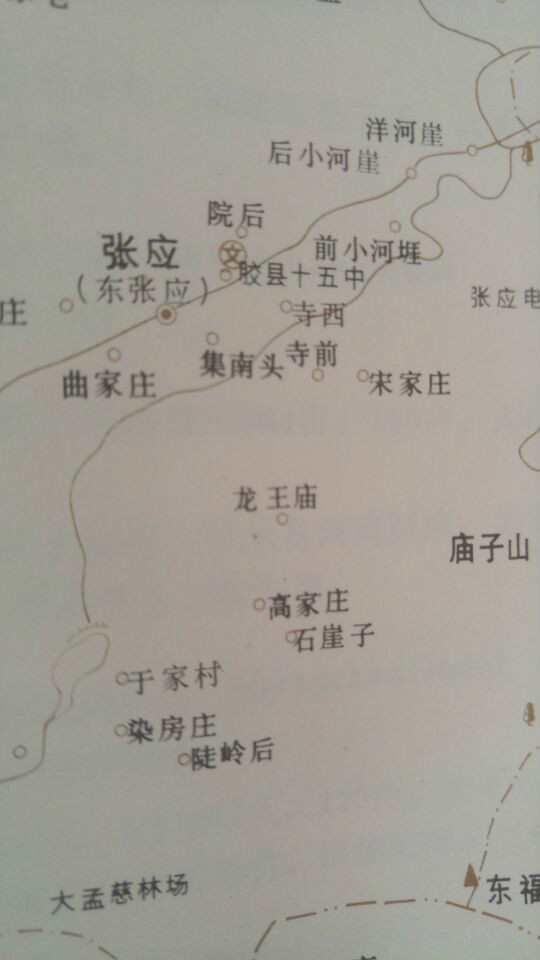 洋河崖
后小河崖
院后
张应
文
前小河堐
(东张应)
胶县十五中
张应电
庄
寺西
集南头
寺前
曲家庄
宋家庄
龙王庙
庙子山
高家庄
石崖子
于家村
染房庄
陡岭后
大孟慈林场
东福